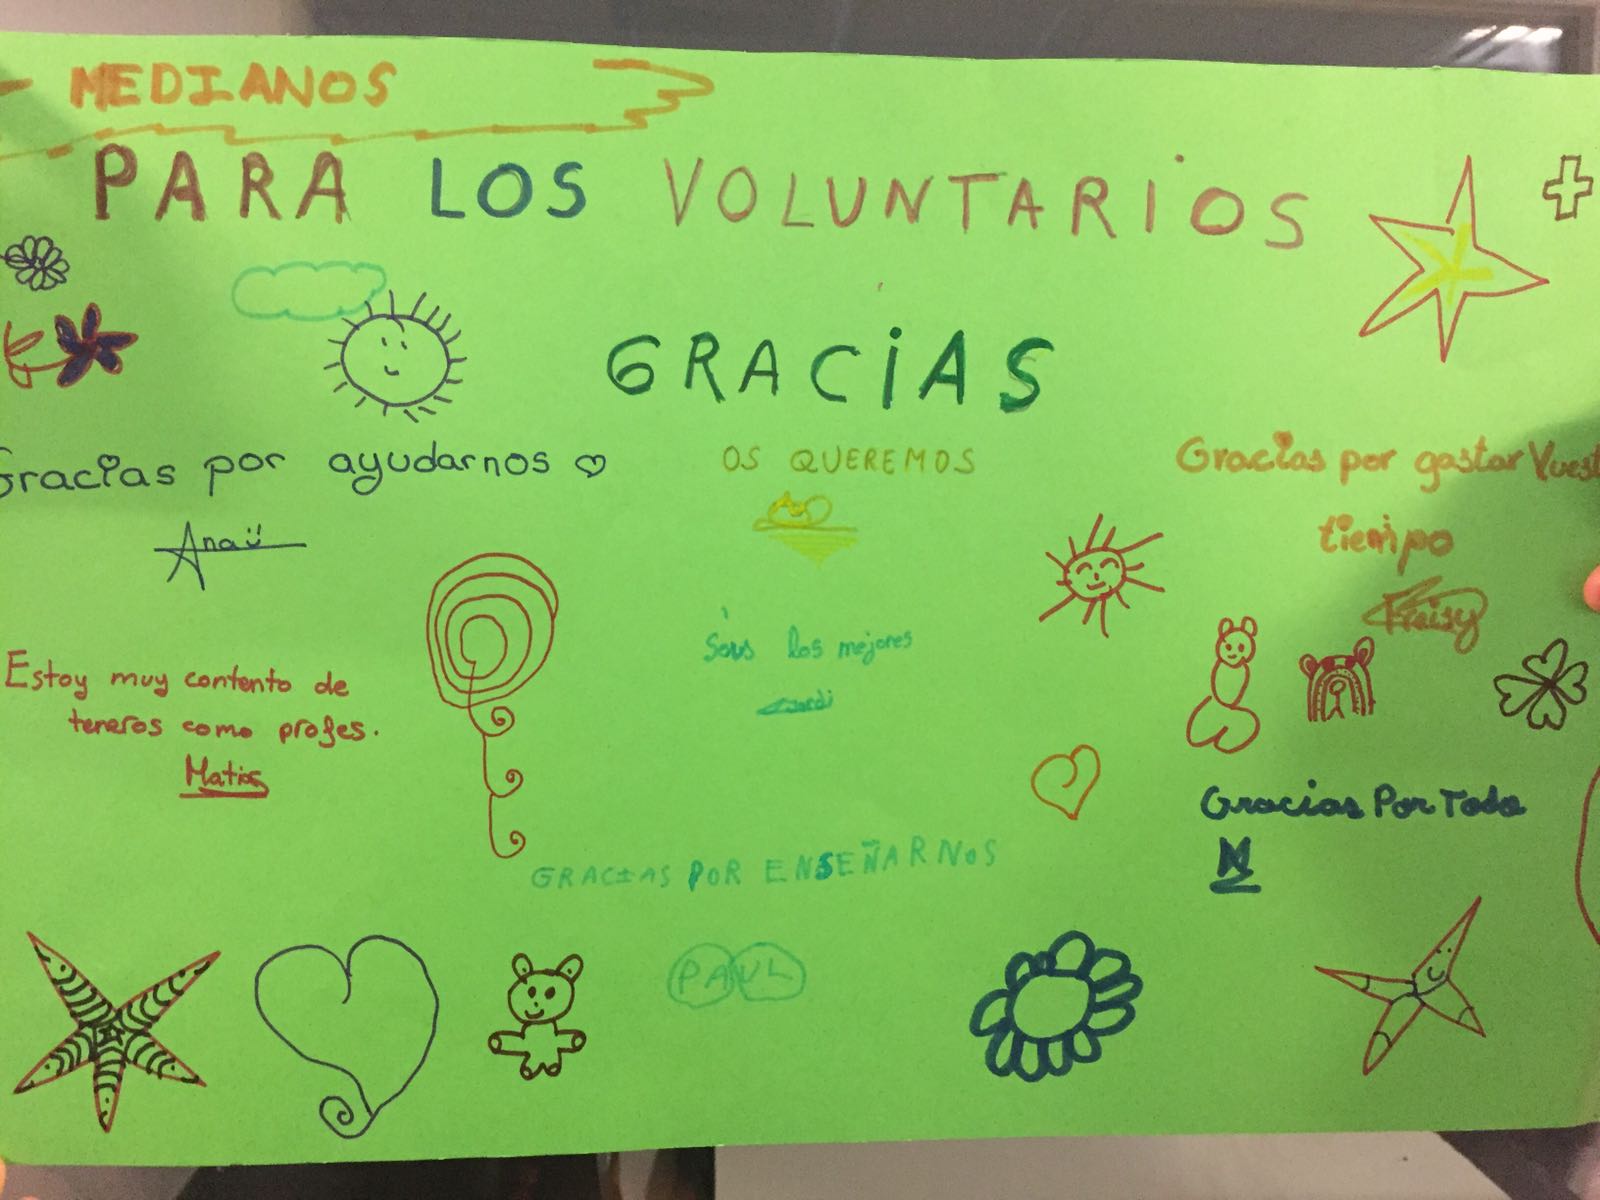 MEDIANOS
PARA LOS VOLUNTARIOS
GRACIAS
Gracias por ayudarnos
Ana
OS QUEREMOS
Gracias por gastar Vuest
tiempo
Freisy
Sóus los mejores
Estoy muy contento de
teneros como profes.
Matias
Gracias Por Todo
N
GRACIAS POR ENSEÑARNOS
PAUL